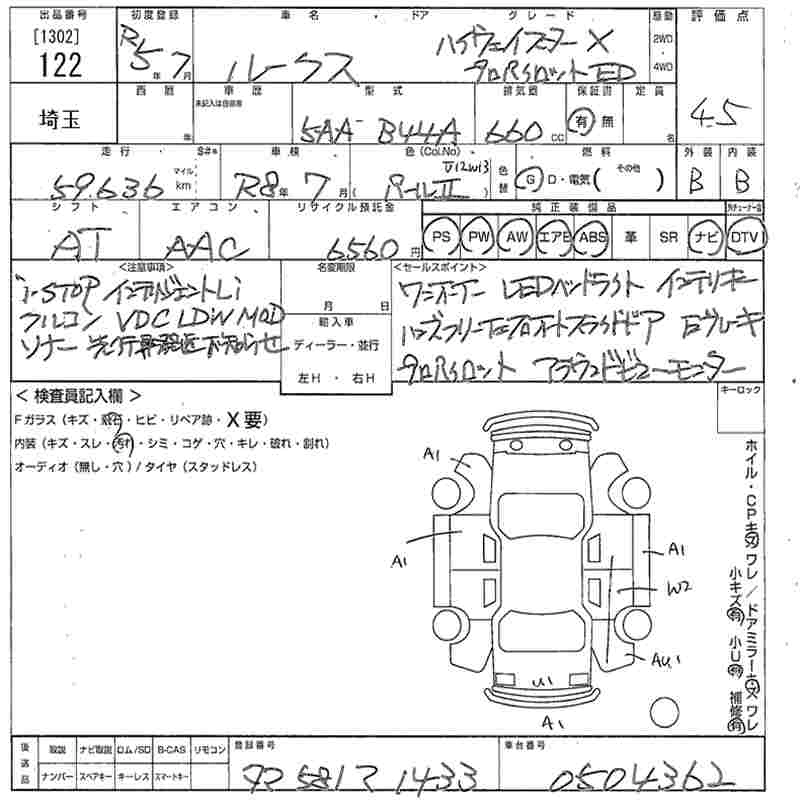 出品番号 初度登録 車名・ドア グレード 駆動 評価点
[1302] R5年7月 ハイウェイスターX 2WD
122 ルークス プロパイロットED 4WD
西暦 車歴 型式 排気量 保証書 定員
未記入は自家用
埼玉 年 5AA-B44A 660cc 有 無 名 4.5
走行 S#* 車検 色(Col.No) 燃料 外装 内装
マイル 色替 その他
59.636km R8年7月 (パールII) G D・電気( ) B B
シフト エアコン リサイクル預託金 純正装備品
AT AAC 6560円 PS PW AW エアB ABS 革 SR ナビ DTV
<注意事項> 名変期限 <セールスポイント>
i-STOP インテリジェントLi 月 日 ワンオーナー LEDヘッドライト インテリキー
フルコン VDC LDW MOD 輸入車 ハンズフリー両オートスライドドア Eブレーキ
ソナー ディーラー・並行 プロパイロット アラウンドビューモニター
左H・右H
<検査員記入欄> キーロック
Fガラス(キズ・飛石・ヒビ・リペア跡・X要)
内装(キズ・スレ・汚れ・シミ・コゲ・穴・キレ・破れ・割れ)
オーディオ(無し・穴)/タイヤ(スタッドレス)
A1
A1 A1
W2
AU1
U1
A1
ホイル・CPキズワレ/ドアミラーキズワレ
小キズ有 小U有 補修有
後送品 取説 ナビ取説 ロム/SD B-CAS リモコン 登録番号 車台番号
ナンバー スペアキー キーレス スマートキー 581 1433 0504362